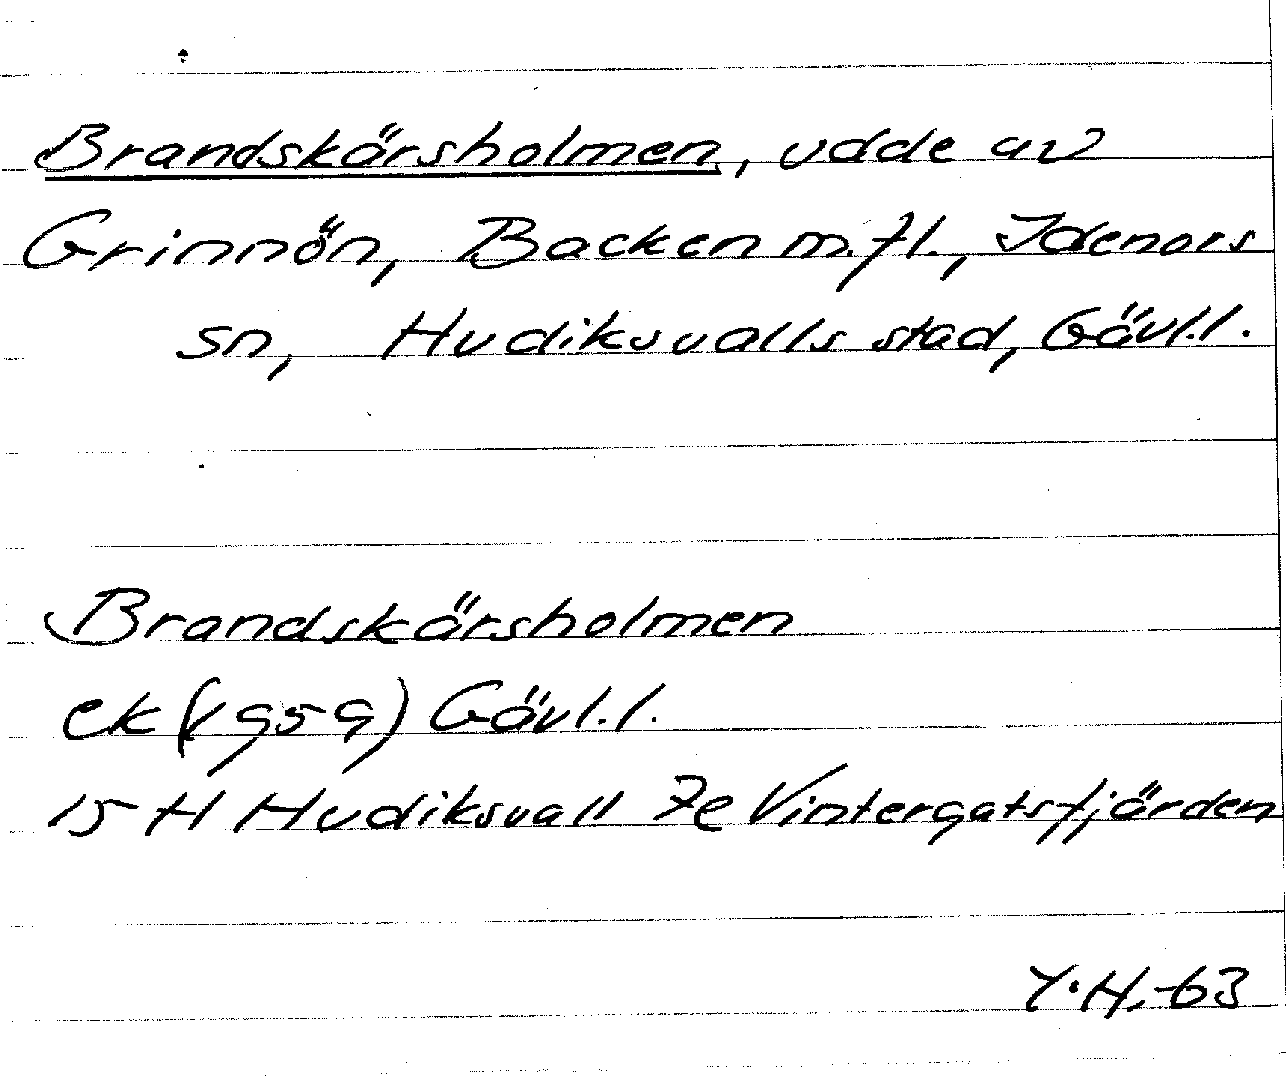 Brandskärsholmen, udde av
Grinnön, Backen m.fl., Idenors
sn, Hudiksvalls stad, Gävl.l.
Brandskärsholmen
ek (1959) Gävl.l.
15 H Hudiksvall 7e Vintergatsfjärden
Y.H.-63